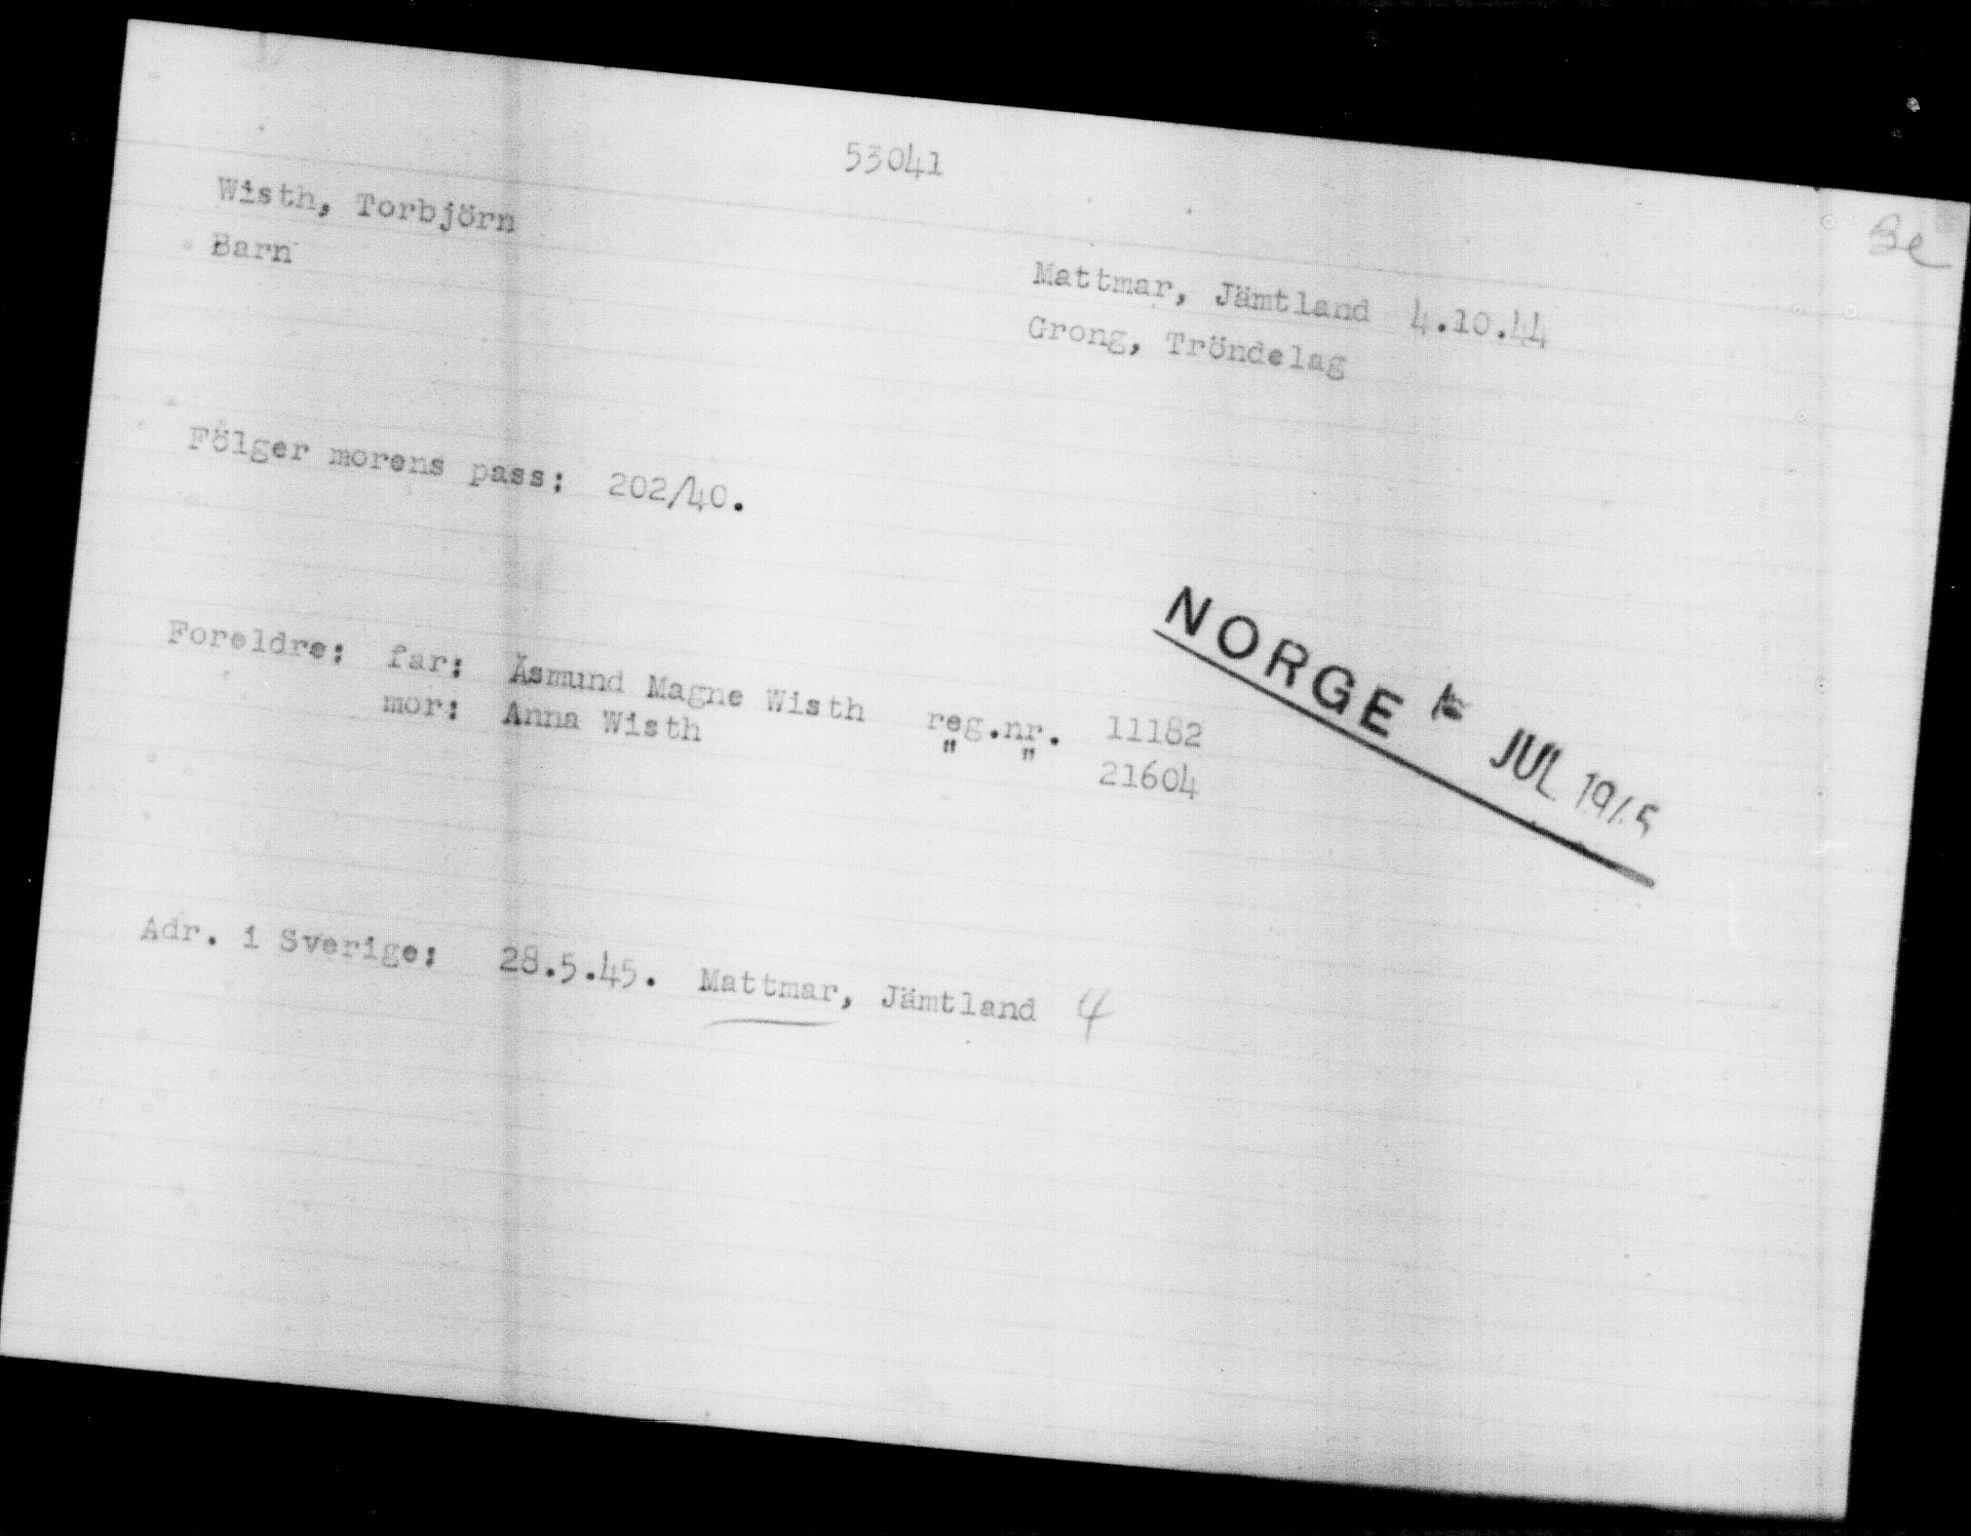 53041
Wisth, Torbjörn
Barn
Be
Mattmar, Jämtland 4.10.44
Grong, Tröndelag
Fölger morens pass: 202/40.
NORGE JUL 1945
Foreldre: far: Åsmund Magne Wisth reg.nr. 11182
mor: Anna Wisth " " 21604
Adr. i Sverige: 28.5.45. Mattmar, Jämtland 4